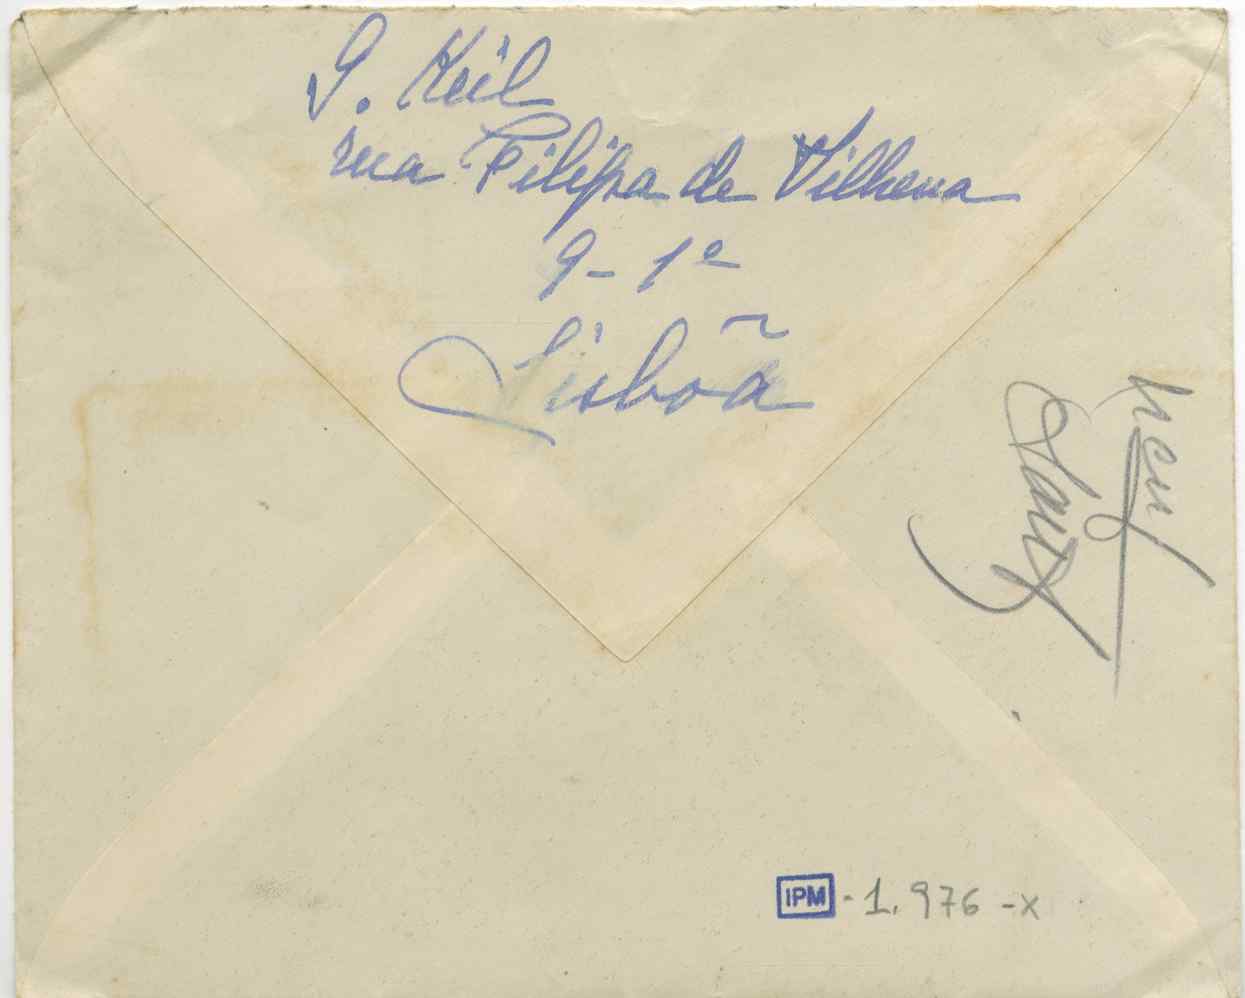 G. Keil
rua Filipa de Vilhena
9-1º
Lisbõa
IPM - 1.976 -X